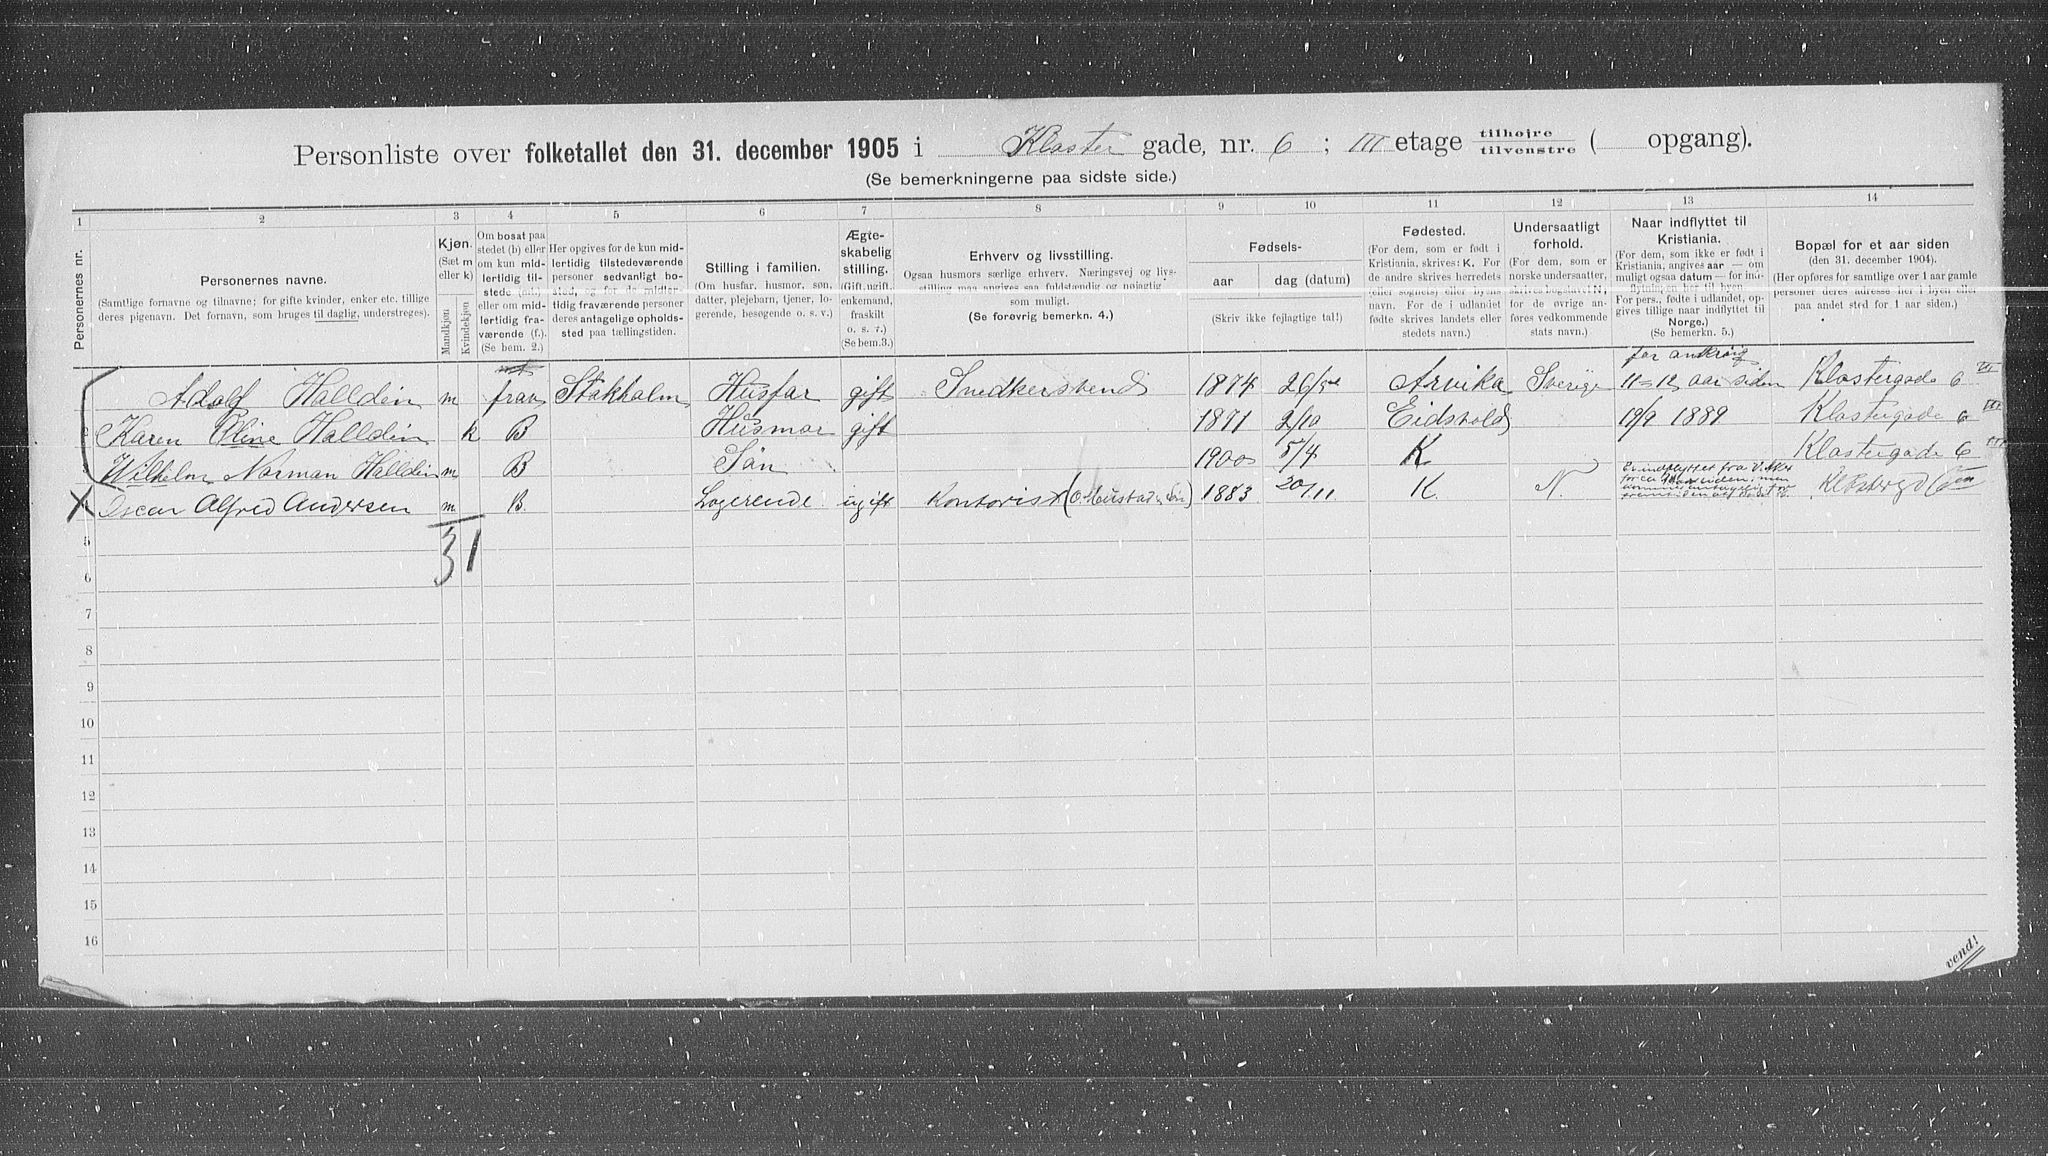 Personliste over folketallet den 31. december 1905 i Kloster gade, nr. 6 ; III etage tilhøjre tilvenstre ( opgang).
(Se bemerkningerne paa sidste side.)
1 2 3 4 5 6 7 8 9 10 11 12 13 14
Personernes nr.
Personernes navne.
(Samtlige fornavne og tilnavne; for gifte kvinder, enker etc. tillige
deres pigenavn. Det fornavn, som bruges til daglig, understreges).
Kjøn.
(Sæt m
eller k)
Mandkjøn
Kvindekjøn
Om bosat paa
stedet (b) eller
om kun mid-
lertidig til-
stede (mt)
eller om mid-
lertidig fra-
værende (f.)
(Se bem. 2.)
Her opgives for de kun mid-
lertidig tilstedeværende
personer sedvanligt bo-
sted, og for de midler-
tidig fraværende personer
deres antagelige opholds-
sted paa tællingstiden.
Stilling i familien.
(Om husfar, husmor, søn,
datter, plejebarn, tjener, lo-
gerende, besøgende o. s. v.)
Ægte-
skabelig
stilling.
(Gift, ugift,
enkemand,
fraskilt
o. s. v.)
(Se bem.3.)
Erhverv og livsstilling.
Ogsaa husmors særlige erhverv. Næringsvej og livs-
stilling maa angives saa fuldstændig og nøjagtig
som muligt.
(Se forøvrig bemerkn. 4.)
Fødsels-
aar dag (datum)
(Skriv ikke fejlagtige tal!)
Fødested.
(For dem, som er født i
Kristiania, skrives: K. For
de andre skrives herredets
(eller sognets) eller byens
navn. For de i udlandet
fødte skrives landets eller
stedets navn.)
Undersaatligt
forhold.
(For dem, som er
norske undersaatter,
skrives bogstavet N,
for de øvrige an-
føres vedkommende
stats navn.)
Naar indflyttet til
Kristiania.
(For dem, som ikke er født i
Kristiania, angives aar — om
muligt ogsaa datum — for ind-
flytningen her til byen.
For pers., fødte i udlandet, op-
gives tillige naar indflyttet til
Norge.)
(Se bemerkn. 5.)
Bopæl for et aar siden
(den 31. december 1904).
(Her opføres for samtlige over 1 aar gamle
personer deres adresse her i byen eller
paa andet sted for 1 aar siden.)
for omkring
Adolf Halldin m frav Stokholm Husfar gift Snedkersvend 1874 26/5 Arvika Sverige 11-12 aar siden Klostergade 6 III
Karen Oline Halldin k B Husmor gift 1871 2/10 Eidsvold 19/9 1889 Klostergade 6 III
Wilhelm Norman Halldin m B Sön 1900 5/4 K Klostergade 6 III
X Oscar Alfred Andersen m B. Logerende ugift Kontorist (O. Mustad & Sön) 1883 20/11 K. N. Er indflyttet fra V. Aker Klosterg. 6
3 1
5
6
7
8
9
10
11
12
13
14
15
16
vend!